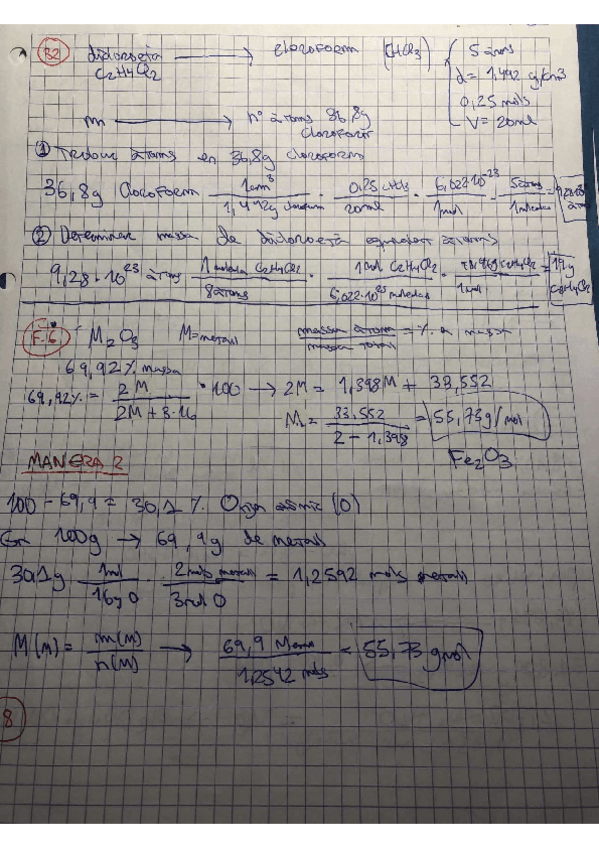 32 dicloroetà → cloroform (CHCl3) { 5 àtoms
C2H4Cl2 d = 1,492 g/cm3
0,25 mols
m → nº àtoms 36,8g V = 20ml
cloroform
① Trobar àtoms en 36,8g cloroform
36,8g Cloroform 1cm3 / 1,492g · 0,25 / 20ml · 6,022·10^23 / 1mol · 5 àtoms / 1 molecula =
② Determinar massa de dicloroetà equivalent àtoms
9,28·10^23 àtoms 1 molecula C2H4Cl2 / 8 àtoms · 1mol C2H4Cl2 / 6,022·10^23 molecules · C2H4Cl2 / 1mol = 19g C2H4Cl2
F.6 M2O3 M = metall massa àtom / massa total = % a massa
69,92% massa
69,92% = 2M / 2M + 3·16 · 100 → 2M = 1,398M + 33,552
M = 33,552 / 2 - 1,398 = 55,73g/mol
Fe2O3
MANERA 2
100 - 69,9 = 30,1 % (O)
En 100g → 69,9g de metall
30,1g 1mol / 16g O · 2 mols metall / 3mol O = 1,2542 mols metall
M(M) = m(M) / n(M) → 69,9 / 1,2542 mols = 55,73 g/mol
8